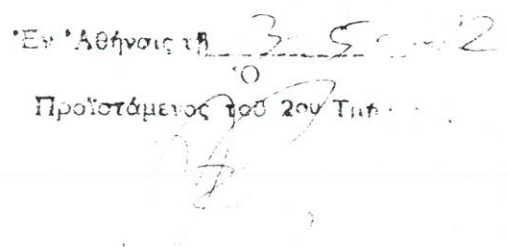 Ἐν Ἀθήναις τῇ 3-5
Ὁ
Προϊστάμενος τοῦ 2ου